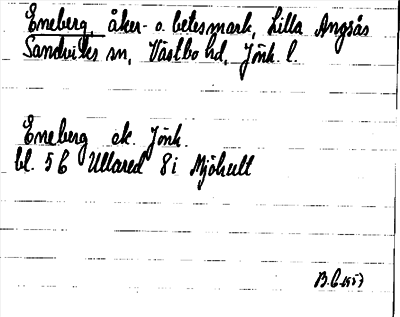 Eneberg, åker- o. betesmark, Lilla Angsås
Sandviks sn, Västbo hd, Jönk. l.
Eneberg ek. Jönk.
bl. 5 C Ullared 8 i Mjöhult
B. C 1957